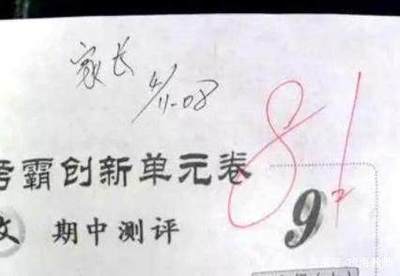 家长
11-08
81
考霸创新单元卷
文 期中测评
9